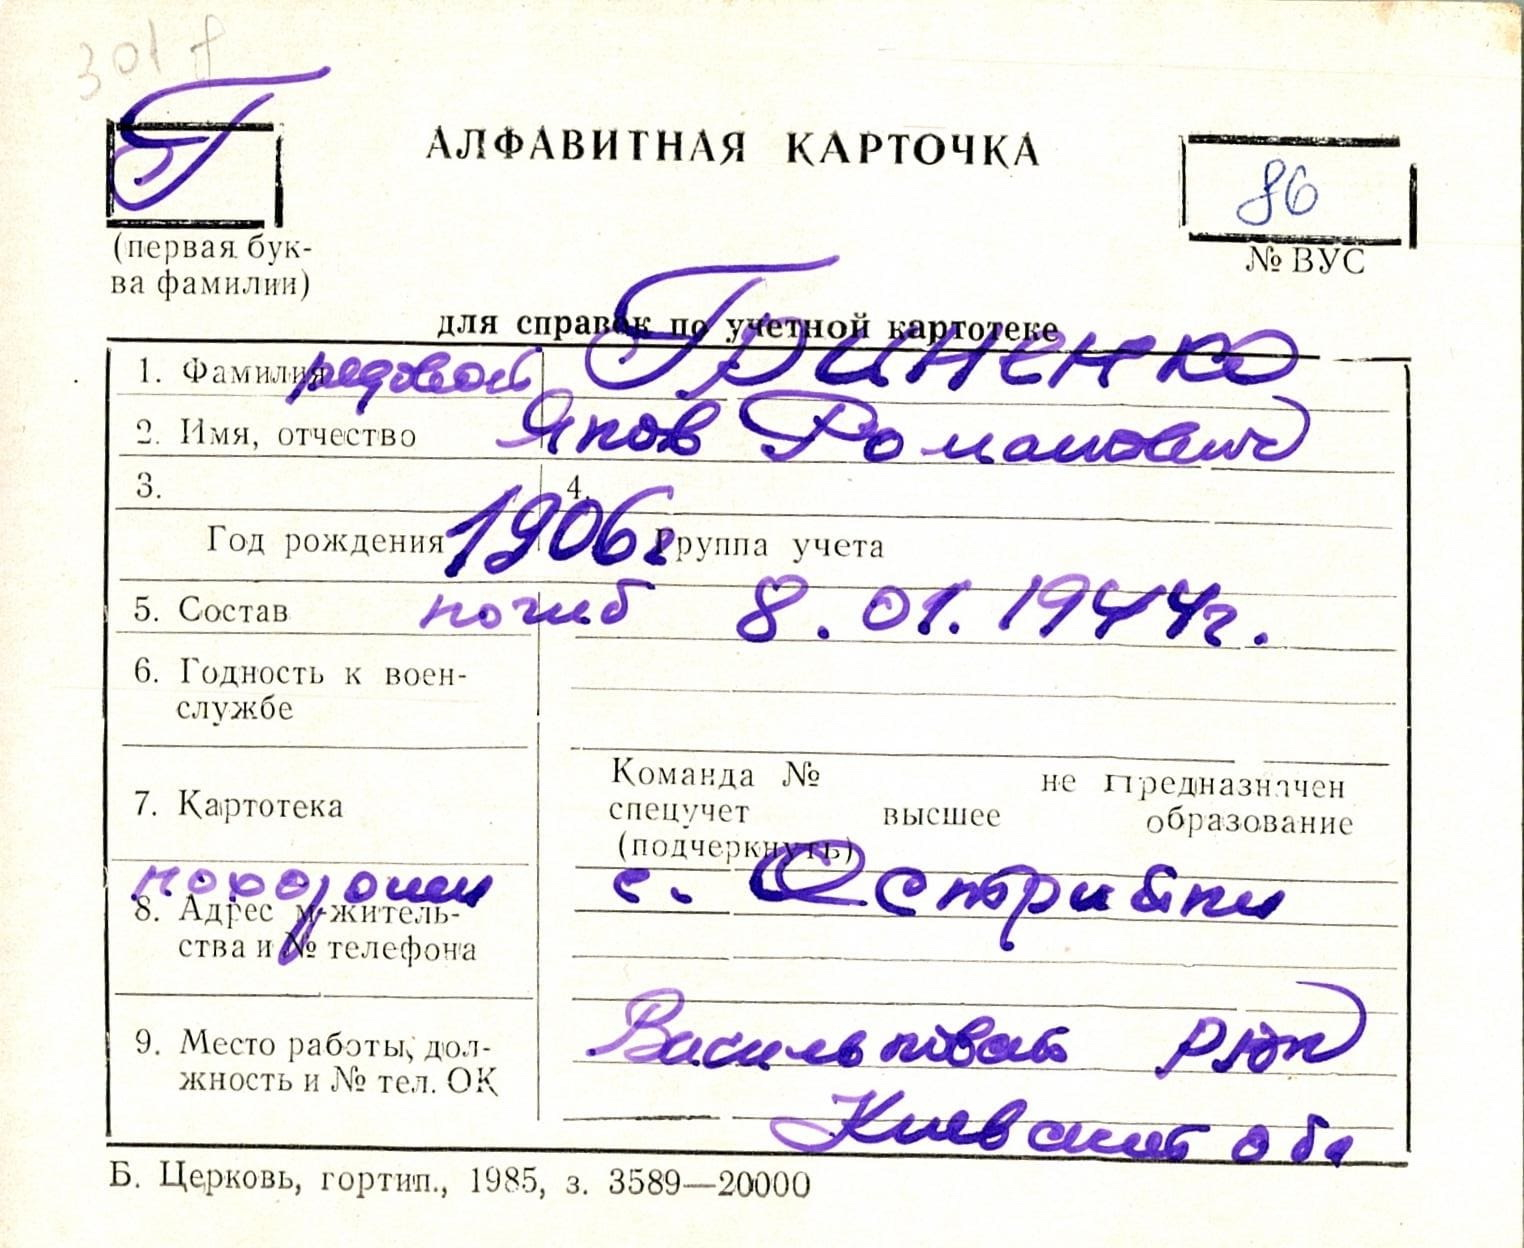 301
Г
АЛФАВИТНАЯ КАРТОЧКА
86
(первая бук-
ва фамилии)
№ ВУС
для справок по учетной картотеке
1. Фамилия рядовой Гриненко
2. Имя, отчество Яков Романович
3. 4.
Год рождения 1906г Группа учета
5. Состав погиб 8.01.1944г.
6. Годность к воен-
службе
Команда № не предназначен
7. Картотека спецучет высшее образование
(подчеркнуть)
похоронен с. Острийки
8. Адрес м-житель-
ства и № телефона
9. Место работы, дол- Васильковский р-он
жность и № тел. ОК
Киевской обл
Б. Церковь, гортип., 1985, з. 3589—20000